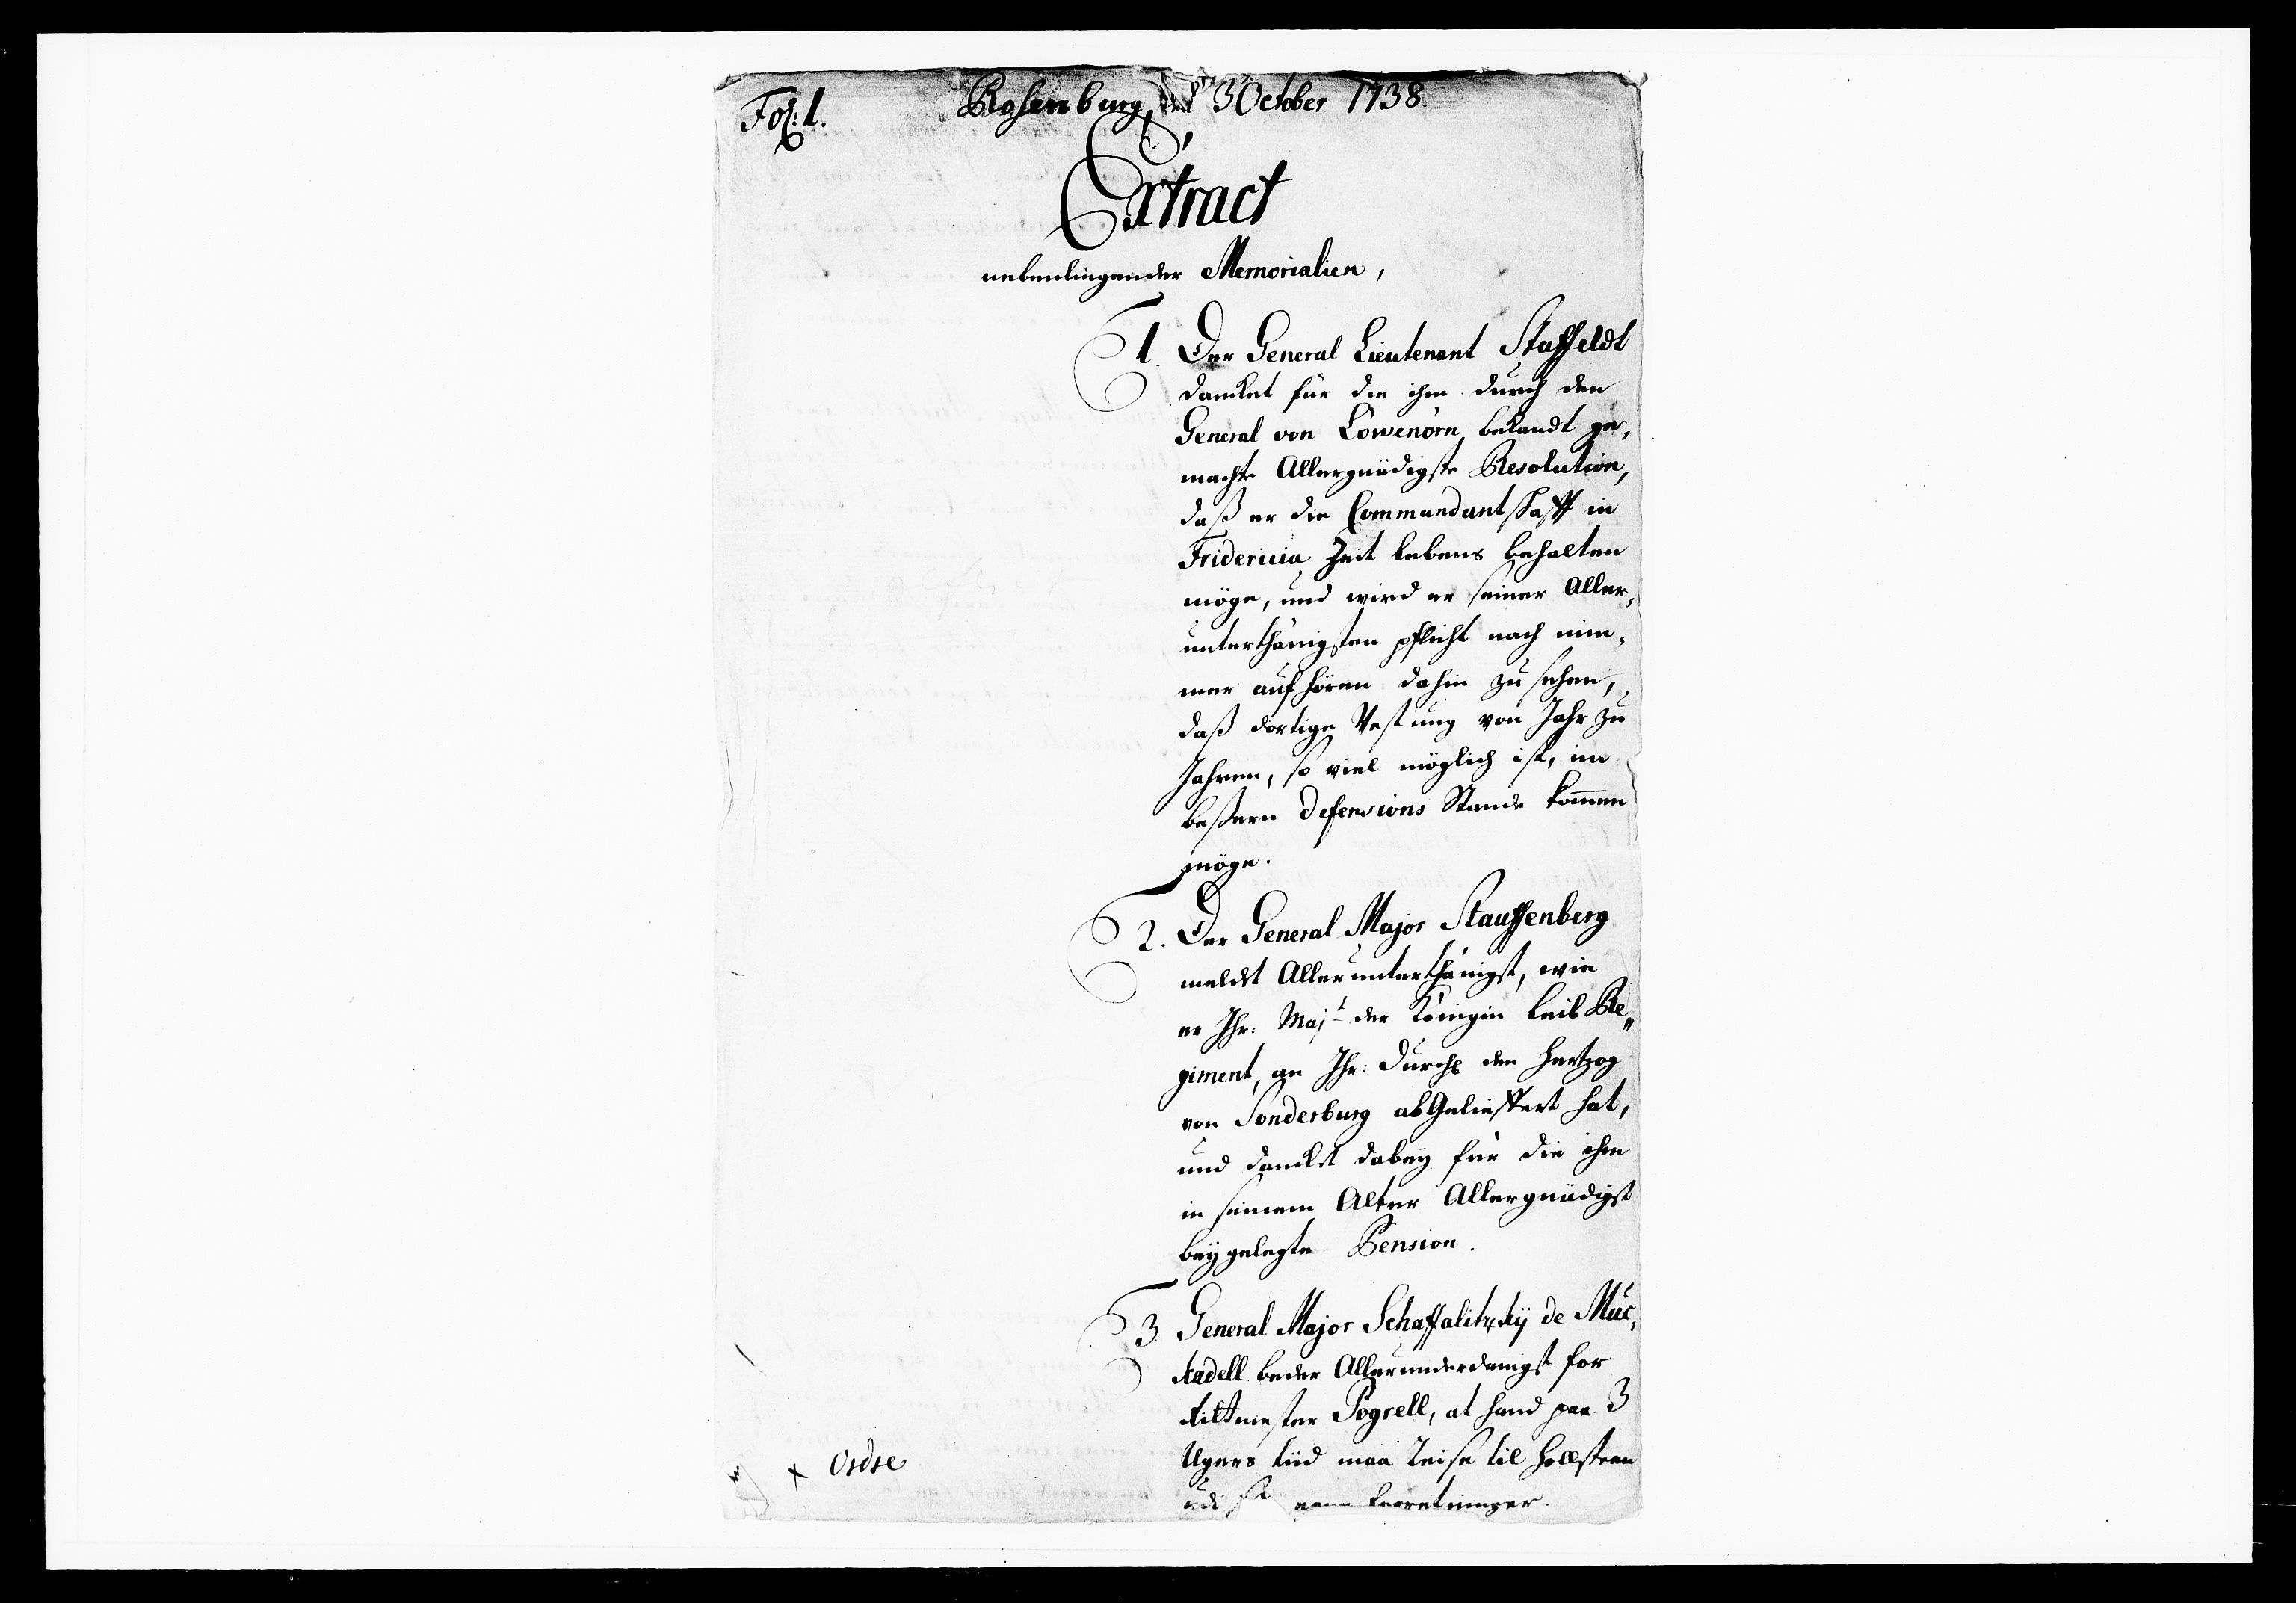 Fol: 1.
Rosenburg, den 3 October 1738.
Extract
nebenliegender Memorialien,
1. Der General Lieutenant Staffeldt
dancket für die ihm durch den
General von Löwenörn bekandt ge,
machte Allergnädigste Resolution,
daß er die Commendantschafft in
Fridericia Zeit lebens behalten
möge, und wird er seiner Aller,
unterthänigsten pflicht nach nim,
mer aufhören dahin zu sehen,
daß dortige Vestung von Jahr zu
Jahren, so viel möglich ist, im
beßern defensions Stande kom̄en
möge.
2. Der General Major Stauffenberg
meldet Allerunterthänigst, wie
er Ihr: Majt der Königin Leib Re„
giment, an Ihr: Durchl den Hertzog
von Sonderburg abgelieffert hat,
und dancket dabey für die ihm
in seinem Alter Allergnädigst
beygelegte Pension.
3. General Major Schaffalitzkÿ de Muc,
kadell beder Allerunderdanigst for
Ritmester Pogrell, at hand paa 3
Ugers tiid maa Reise til Hollsteen
udi sine forretninger.
x Ordre